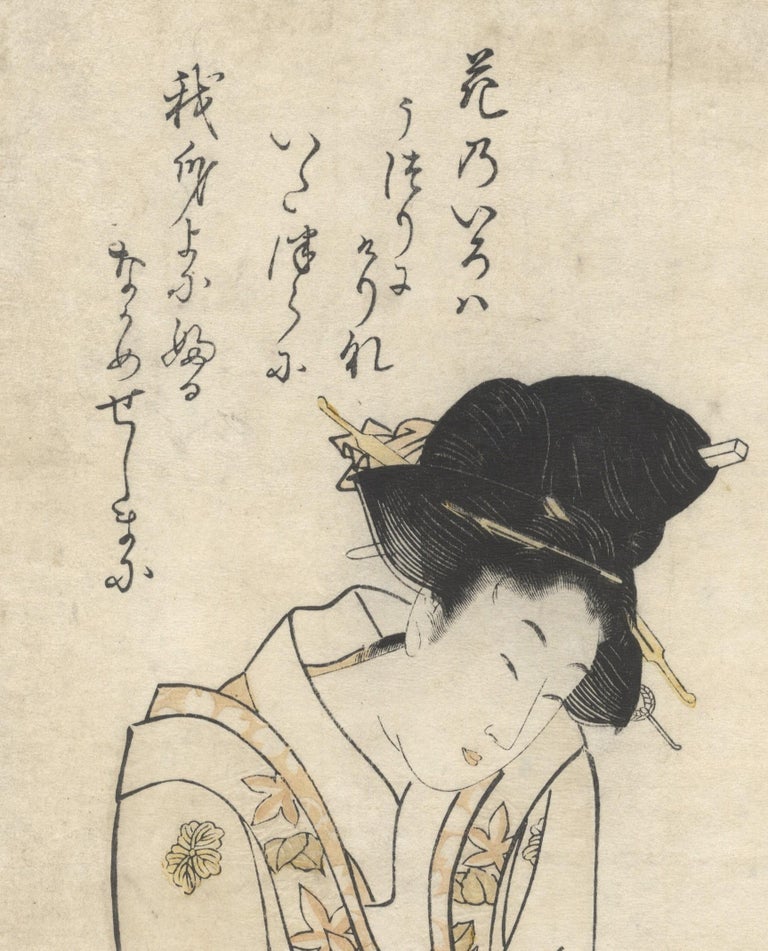 花乃いろハ
うつりに
けりな
いたつらに
我身よにふる
なかめせしまに